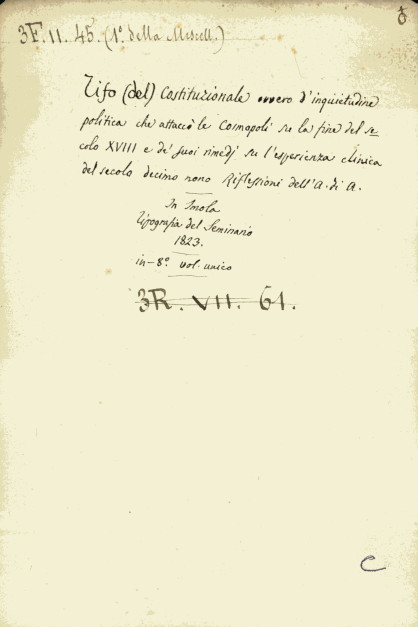 3F. II. 45. (1° della Miscell.)
Tifo (del) Costituzionale ovvero d'inquietudine
politica che attaccò le Cosmopoli su la fine del se-
colo XVIII e de' suoi rimedj su l'esperienza clinica
del secolo decimo nono Riflessioni dell'A. di A.
In Imola
Tipografia del Seminario
1823.
in-8° vol. unico
3R. VII. 61.
C